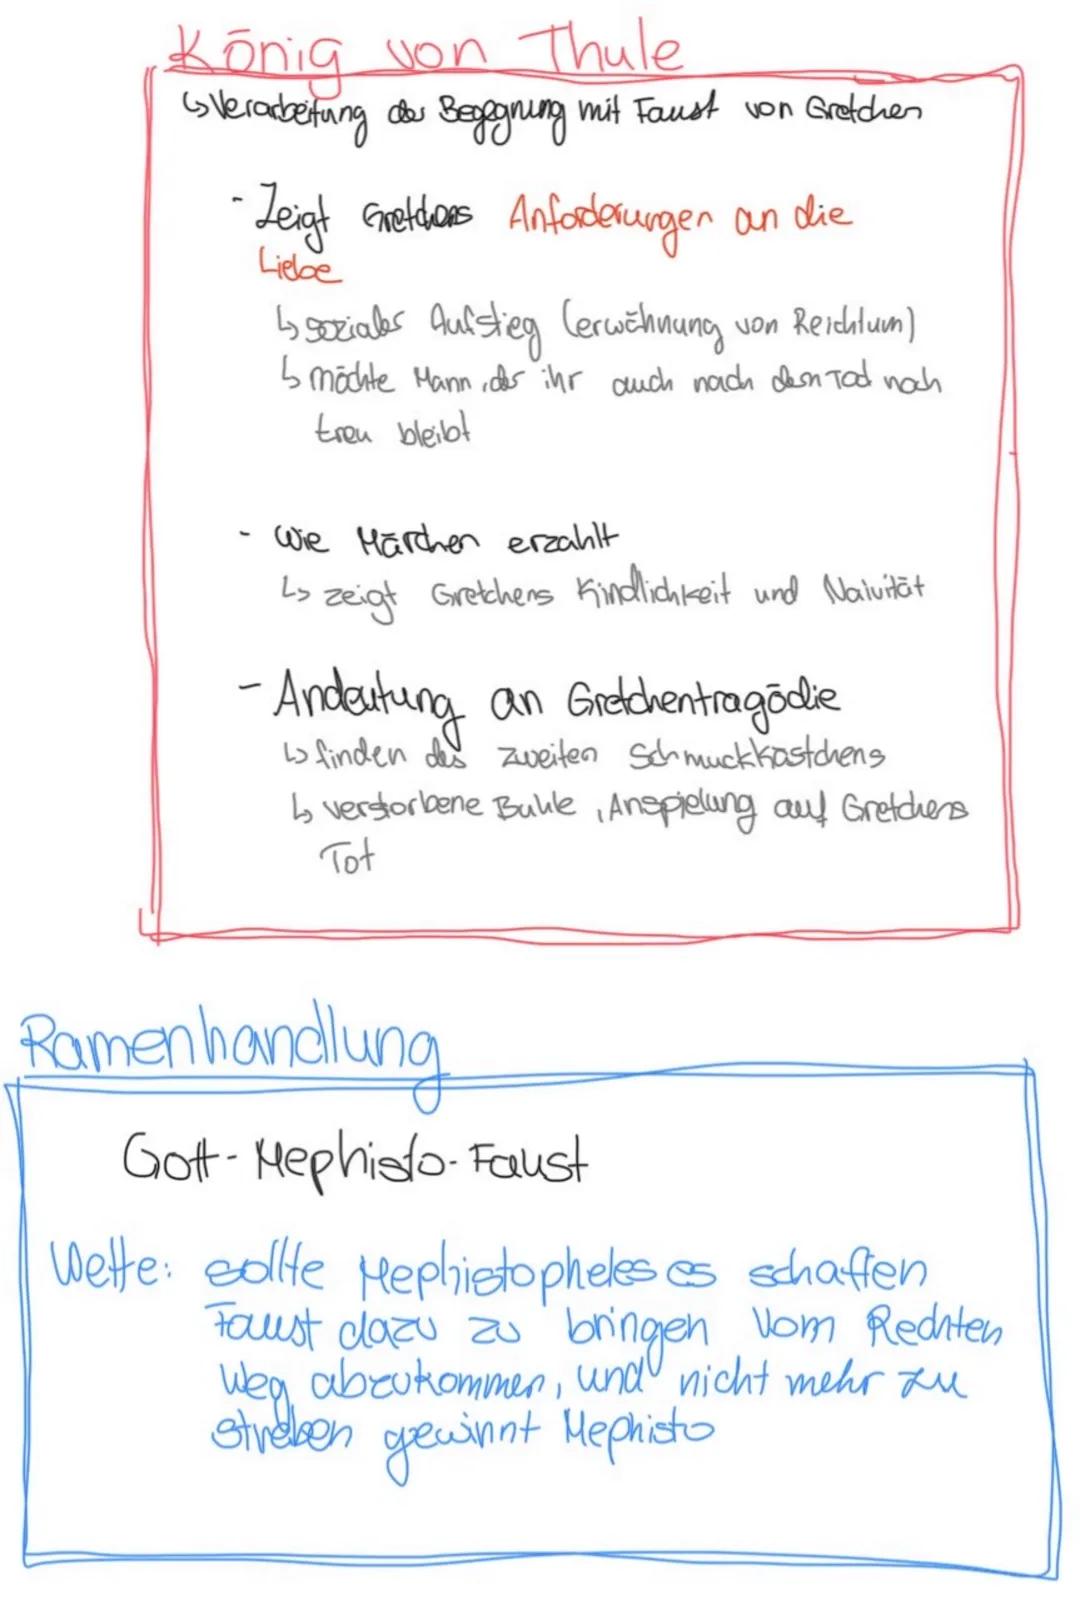 König von Thule
↳ Verarbeitung der Begegnung mit Faust von Gretchen
- Zeigt Gretchens Anforderungen an die
Liebe
↳ sozialer Aufstieg (erwähnung von Reichtum)
↳ möchte Mann, der ihr auch nach dem Tod noch
treu bleibt
- wie Märchen erzählt
↳ zeigt Gretchens Kindlichkeit und Naivität
- Andeutung an Gretchentragödie
↳ finden des zweiten Schmuckkästchens
↳ verstorbene Buhle, Anspielung auf Gretchens
Tot
Ramenhandlung
Gott - Mephisto - Faust
Wette: sollte Mephistopheles es schaffen
Faust dazu zu bringen vom Rechten
Weg abzukommen, und nicht mehr zu
streben gewinnt Mephisto